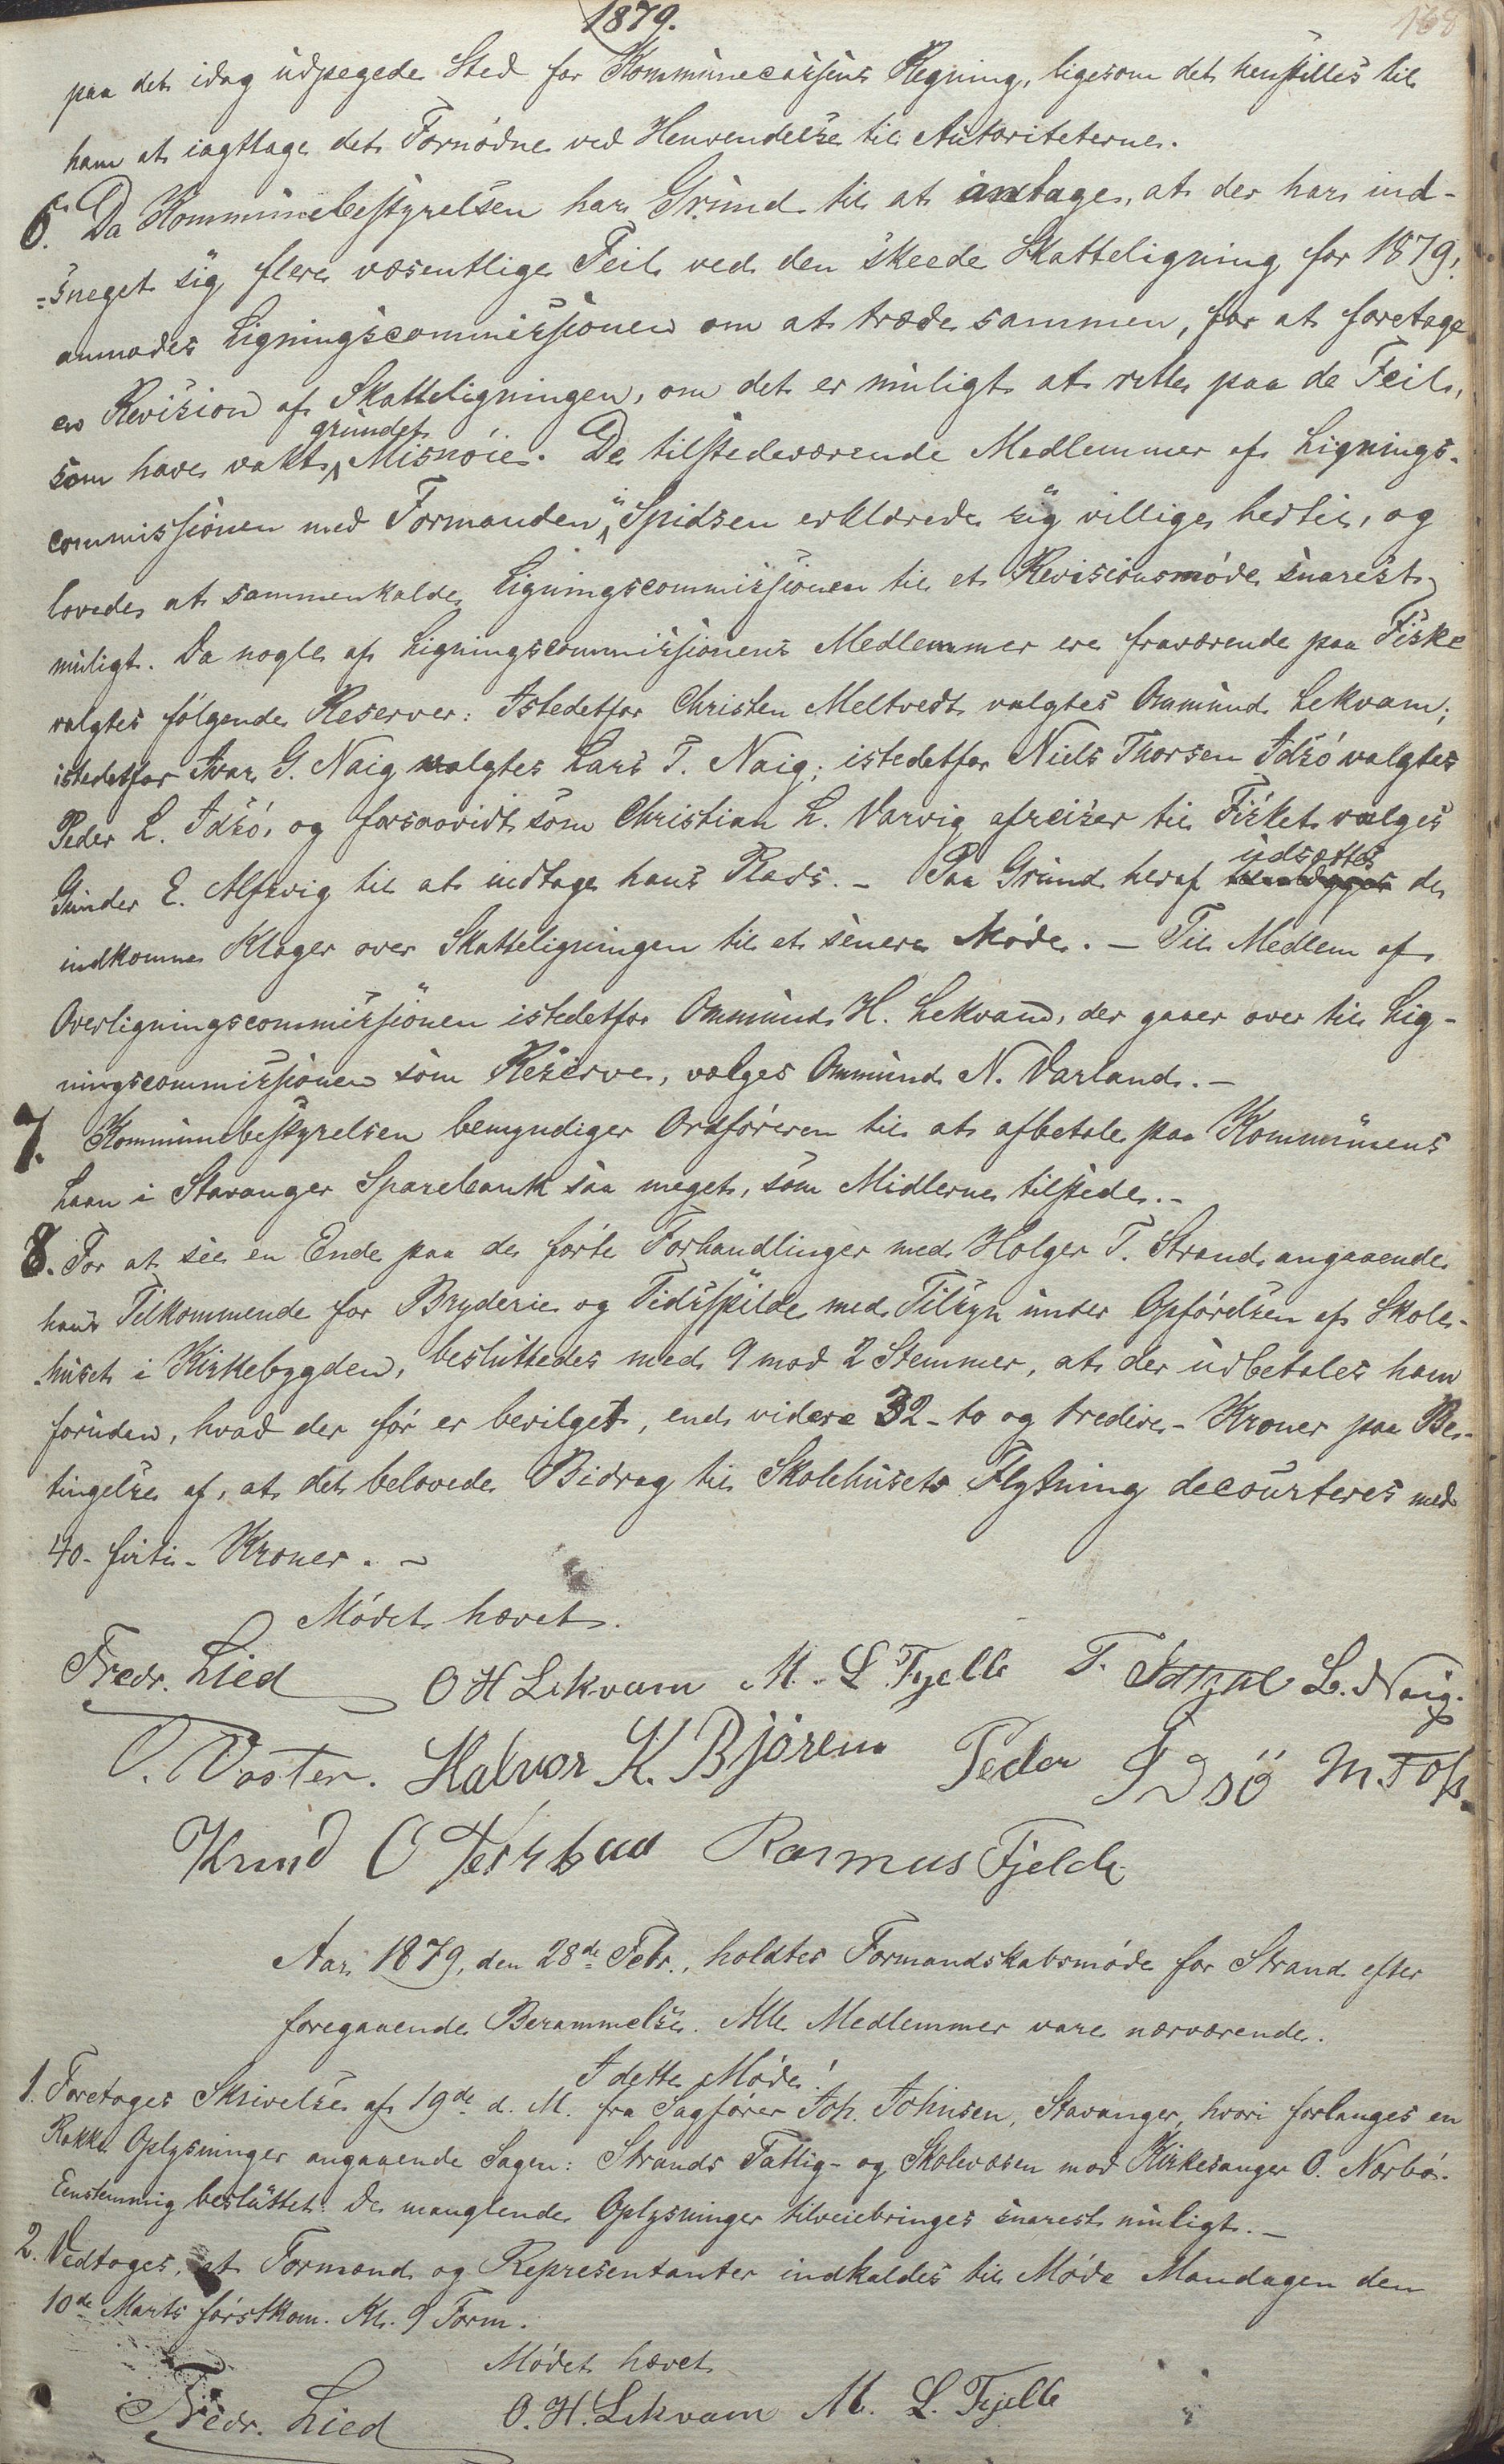 1879.
168
paa det idag udpegede Sted for Kommunecassens Regning, ligesom det henstilles til
ham at iagttage det Fornødne ved Henvendelse til Autoriteterne.
6. Da Kommunebestyrelsen har Grund til at antage, at der har ind-
=sneget sig flere væsentlige Feil ved den skeede Skatteligning for 1879,
anmodes Ligningscommissionen om at træde sammen, for at foretage
en Revision af Skatteligningen, om det er muligt at rette paa de Feil,
grundet
som have vakt Misnøie. De tilstedeværende Medlemmer af Lignings-
commissionen med Formanden i Spidsen erklærede sig villige hertil, og
lovede at sammenkalde Ligningscommissionen til et Revisionsmøde snarest
muligt. Da nogle af Ligningscommissionens Medlemmer ere fraværende paa Fiske
valgtes følgende Reserver: Istedetfor Christen Meltvedt valgtes Ommund Lekvam;
istedetfor Ivar G. Naig valgtes Lars T. Naig; istedetfor Niels Thorsen Idsö valgtes
Peder L. Idsö, og forsaavidt som Christian L. Varvig afreiser til Fisket vælges
udsættes
Gunder E. Alsvig til at indtage hans Plads. - Paa Grund heraf de
indkomne Klager over Skatteligningen til et senere Møde. - Til Medlem af
Overligningscommissionen istedetfor Ommund H. Lekvam, der gaaer over til Lig-
ningscommissionen som Reserve, vælges Ommund N. Varland. -
7. Kommunebestyrelsen bemyndiger Ordføreren til at afbetale paa Kommunens
Laan i Stavanger Sparebank saa meget, som Midlerne tilstede. -
8. For at see en Ende paa de førte Forhandlinger med Holger T. Strand angaaende
hans Tilkommende for Bryderie og Tidsspilde med Tilsyn under Opførelsen af Skole-
huset i Kirkebygden, besluttedes med 9 mod 2 Stemmer, at der udbetales ham
foruden, hvad der før er bevilget, end videre 32 - to og tredive - Kroner paa Be-
tingelse af, at det belovede Bidrag til Skolehusets Flytning decourteres med
40 - firti - Kroner. -
Mødet hævet.
Fredr. Lied O H Lekvam M. L. Fjelle T. L. Naig.
O. Voster. Halvor K. Bjóreim Peder Idsö M. Foss.
Knud O Rasmus Fjelde
Aar 1879, den 28de Febr., holdtes Formandskabsmøde for Strand efter
foregaaende Berammelse. Alle Medlemmer vare nærværende.
I dette Møde:
1. Foretoges Skrivelse af 19de d. M. fra Sagfører Joh. Johnsen, Stavanger, hvori forlanges en
Række Oplysninger angaaende Sagen: Strands Fattig- og Skolevæsen mod Kirkesanger O. Nærbø.
Eenstemmig besluttet: De manglende Oplysninger tilveiebringes snarest muligt. -
2. Vedtoges, at Formænd og Representanter indkaldes til Møde Mandagen den
10de Marts førstkom. Kl. 9 Form.
Mødet hævet
Fredr. Lied O. H. Lekvam M. L. Fjelle